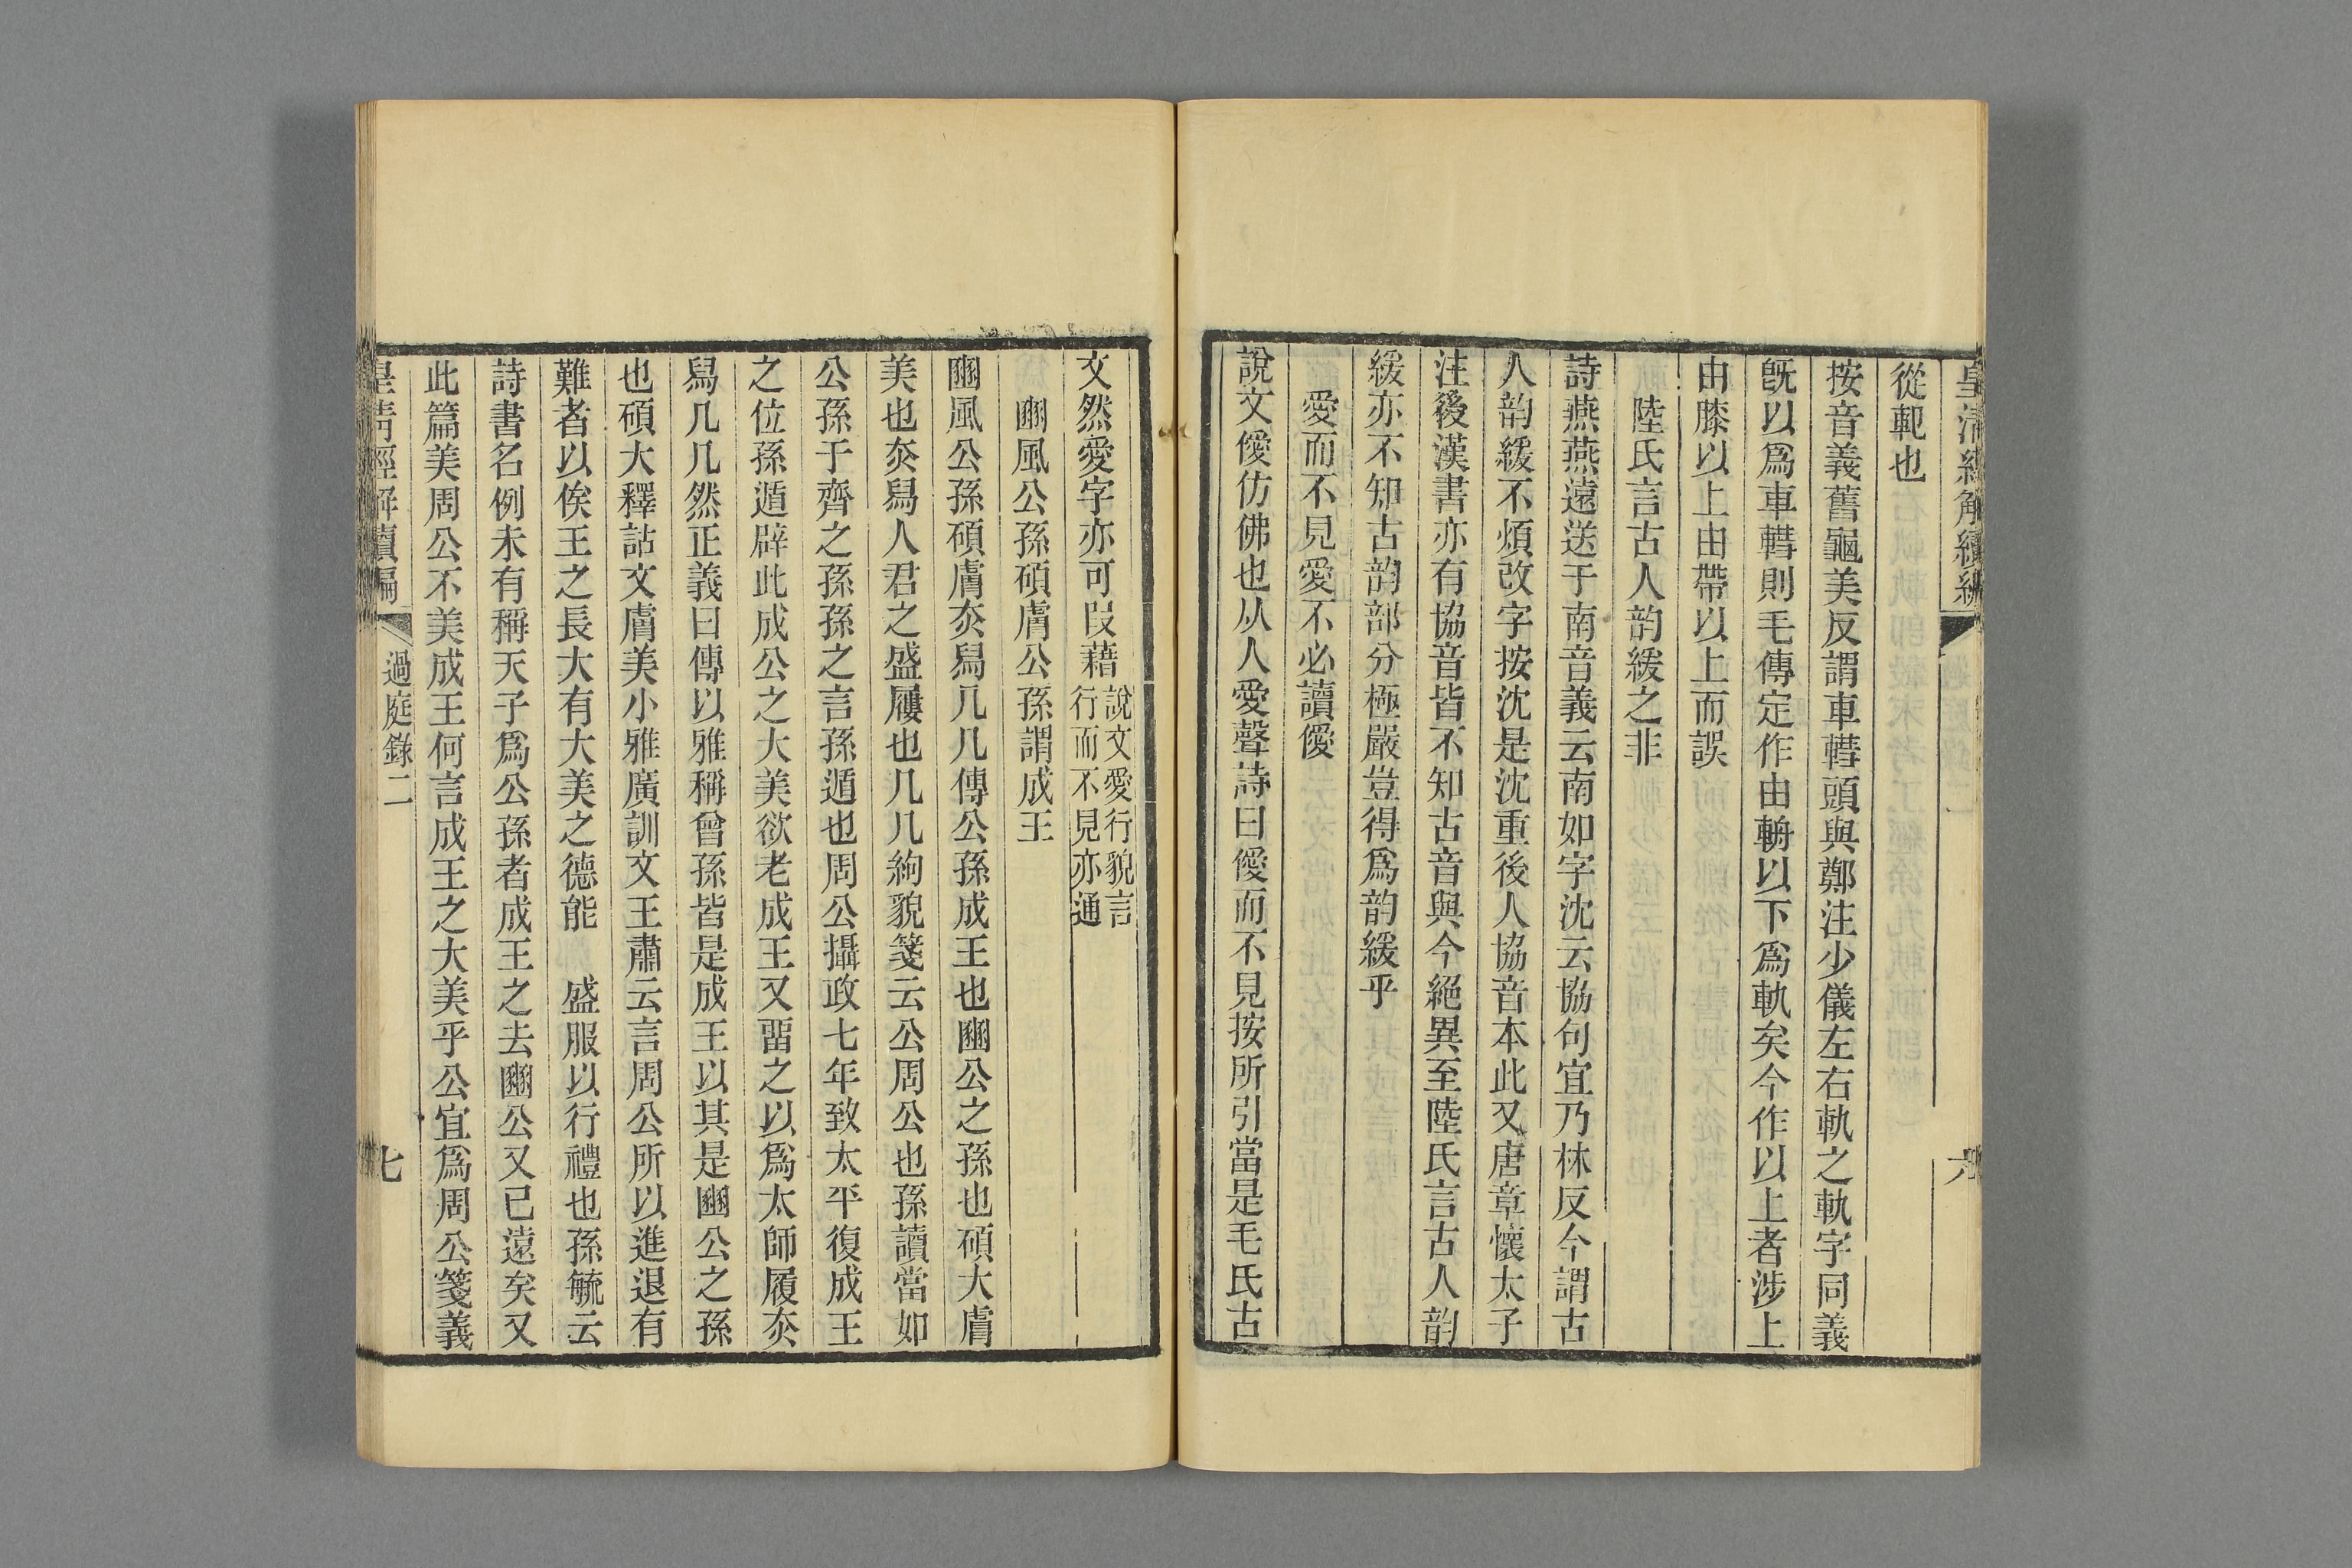 皇清經解續編
六
從範也
按音義舊龜美反謂車轊頭與鄭注少儀左右軌之軌字同義
旣以爲車轊則毛傳定作由輈以下爲軌矣今作以上者涉上
由膝以上由帶以上而誤
陸氏言古人韵緩之非
詩燕燕遠送于南音義云南如字沈云協句宜乃林反今謂古
人韵緩不煩改字按沈是沈重後人協音本此又唐章懷太子
注後漢書亦有協音皆不知古音與今絕異至陸氏言古人韵
緩亦不知古韵部分極嚴豈得爲韵緩乎
愛而不見愛不必讀僾
說文僾仿佛也从人愛聲詩曰僾而不見按所引當是毛氏古
文然愛字亦可叚藉說文愛行貌言
行而不見亦通
豳風公孫碩膚公孫謂成王
豳風公孫碩膚赤舃几几傳公孫成王也豳公之孫也碩大膚
美也赤舃人君之盛屨也几几絇貌箋云公周公也孫讀當如
公孫于齊之孫孫之言孫遁也周公攝政七年致太平復成王
之位孫遁辟此成公之大美欲老成王又畱之以爲太師履赤
舃几几然正義曰傳以雅稱曾孫皆是成王以其是豳公之孫
也碩大釋詁文膚美小雅廣訓文王肅云言周公所以進退有
難者以俟王之長大有大美之德能　盛服以行禮也孫毓云
詩書名例未有稱天子爲公孫者成王之去豳公又已遠矣又
此篇美周公不美成王何言成王之大美乎公宜爲周公箋義
皇清經解續編
過庭錄二
七